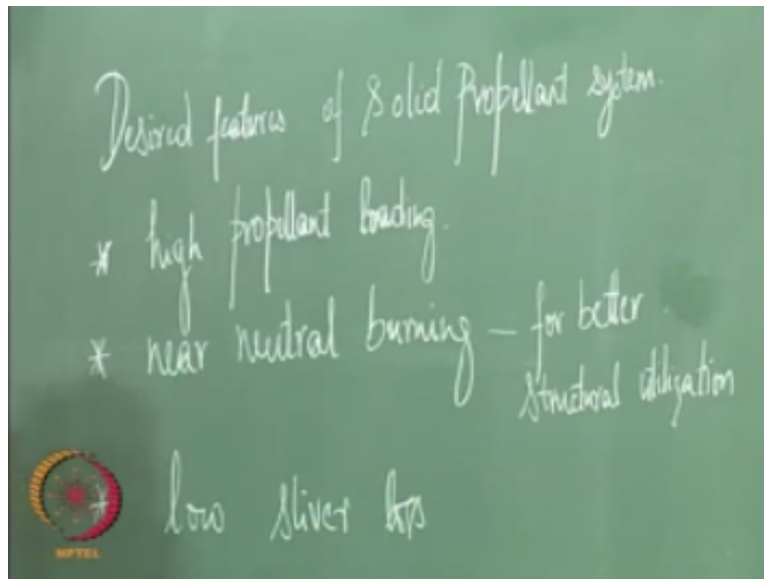 Desired features of Solid Propellant system.
* high propellant loading.
* near neutral burning – for better
structural utilization
* low sliver loss
NPTEL